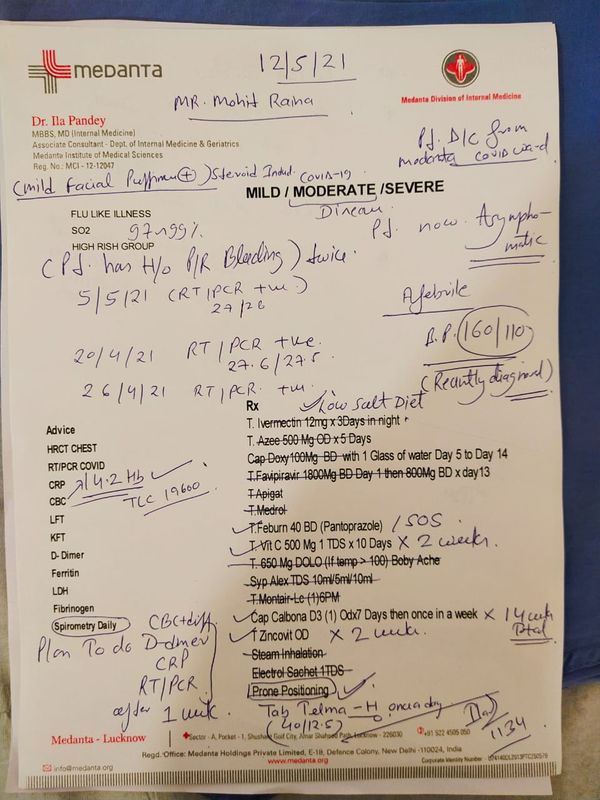 medanta
12/5/21
Mr. Mohit Raina
Medanta Division of Internal Medicine
Dr. Ila Pandey
MBBS, MD (Internal Medicine)
Associate Consultant - Dept. of Internal Medicine & Geriatrics
Medanta Institute of Medical Sciences
Reg. No.: MCI - 12-12047
Pt. D/C from
medanta covid ward
(mild Facial Puffiness +) Steroid Indu. COVID-19
MILD / MODERATE /SEVERE
Disease
FLU LIKE ILLNESS
SO2 97-99%
HIGH RISH GROUP
Pt. now. Asympto-
matic
(Pt. has H/o P/R Bleeding) twice.
5/5/21 (RT/PCR +ve.)
27/28
Afebrile
B.P. 160/110
(Recently diagnosed)
20/4/21 RT/PCR +ve
27.6/27.5
26/4/21 RT/PCR. +ve
Rx
Low Salt Diet
Advice
HRCT CHEST
RT/PCR COVID
CRP
14.2 Hb
CBC
TLC 19600
LFT
KFT
D- Dimer
Ferritin
LDH
Fibrinogen
Spirometry Daily
T. Ivermectin 12mg x 3Days in night
T. Azee 500 Mg OD x 5 Days
Cap Doxy100Mg BD with 1 Glass of water Day 5 to Day 14
T.Favipiravir 1800Mg BD Day 1 then 800Mg BD x day13
T.Apigat
T.Medrol
T.Feburn 40 BD (Pantoprazole) / SOS
T.Vit C 500 Mg 1 TDS x 10 Days X 2 weeks.
T. 650 Mg DOLO (If temp > 100) Boby Ache
Syp Alex TDS 10ml/5ml/10ml
T.Montair-Lc (1)6PM
Cap Calbona D3 (1) Odx7 Days then once in a week X 14 week
Total
T Zincovit OD X 2 week.
Steam Inhalation
Electrol Sachet 1TDS
Prone Positioning
CBC+diff
Plan To do D-dimer
CRP
RT/PCR
after 1 week.
Tab Telma - H once a day
(40/12.5)
1134
Medanta - Lucknow
Sector - A, Pocket - 1, Shushant Golf City, Amar Shaheed Path, Lucknow - 226030
+91 522 4505 050
Regd. Office: Medanta Holdings Private Limited, E-18, Defence Colony, New Delhi -110024, India
www.medanta.org
info@medanta.org
Corporate Identity Number